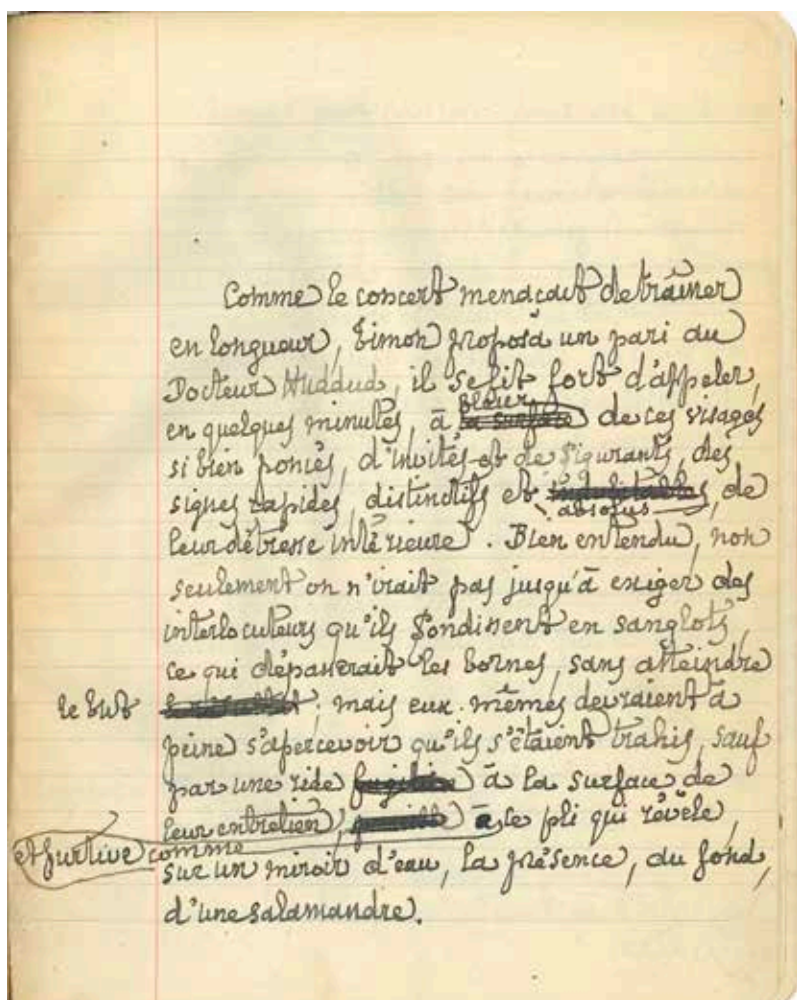 Comme le concert menaçait de traîner
en longueur, Timon proposa un pari au
Docteur Huddud, il se fit fort d'appeler,
fleur
en quelques minutes, à la surface de ces visages
si bien poncés, d'invités et de figurants, des
signes rapides, distinctifs et indubitables, de
absolus
leur détresse intérieure. Bien entendu, non
seulement on n'irait pas jusqu'à exiger des
interlocuteurs qu'ils fondissent en sanglots,
ce qui dépasserait les bornes, sans atteindre
le but ; mais eux-mêmes devraient à
peine s'apercevoir qu'ils s'étaient trahis, sauf
par une ride fugitive à la surface de
leur entretien, pareille à ce pli qui révèle,
et furtive comme
sur un miroir d'eau, la présence, au fond,
d'une salamandre.